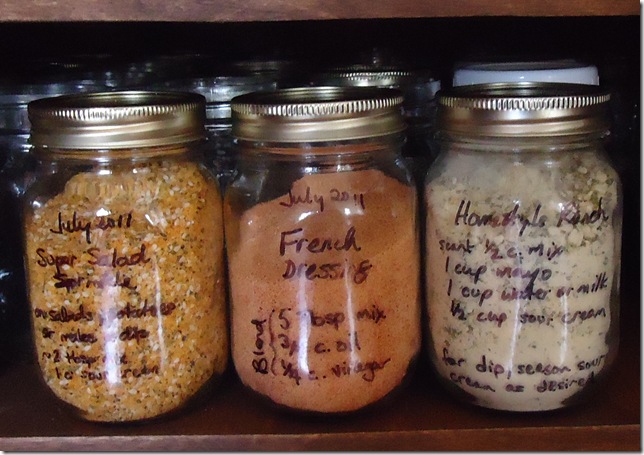 July 2011
Super Salad
Sprinkle
on salads, potatoes
or makes
2 Tbsp mix
to sour cream
July 2011
French
Dressing
Blend
5 Tbsp mix
3/4 c. oil
1/4 c. vinegar
Homestyle Ranch
1/2 c. mix
1 cup mayo
1 cup water or milk
1/2 cup sour cream
for dip, season sour
cream as desired